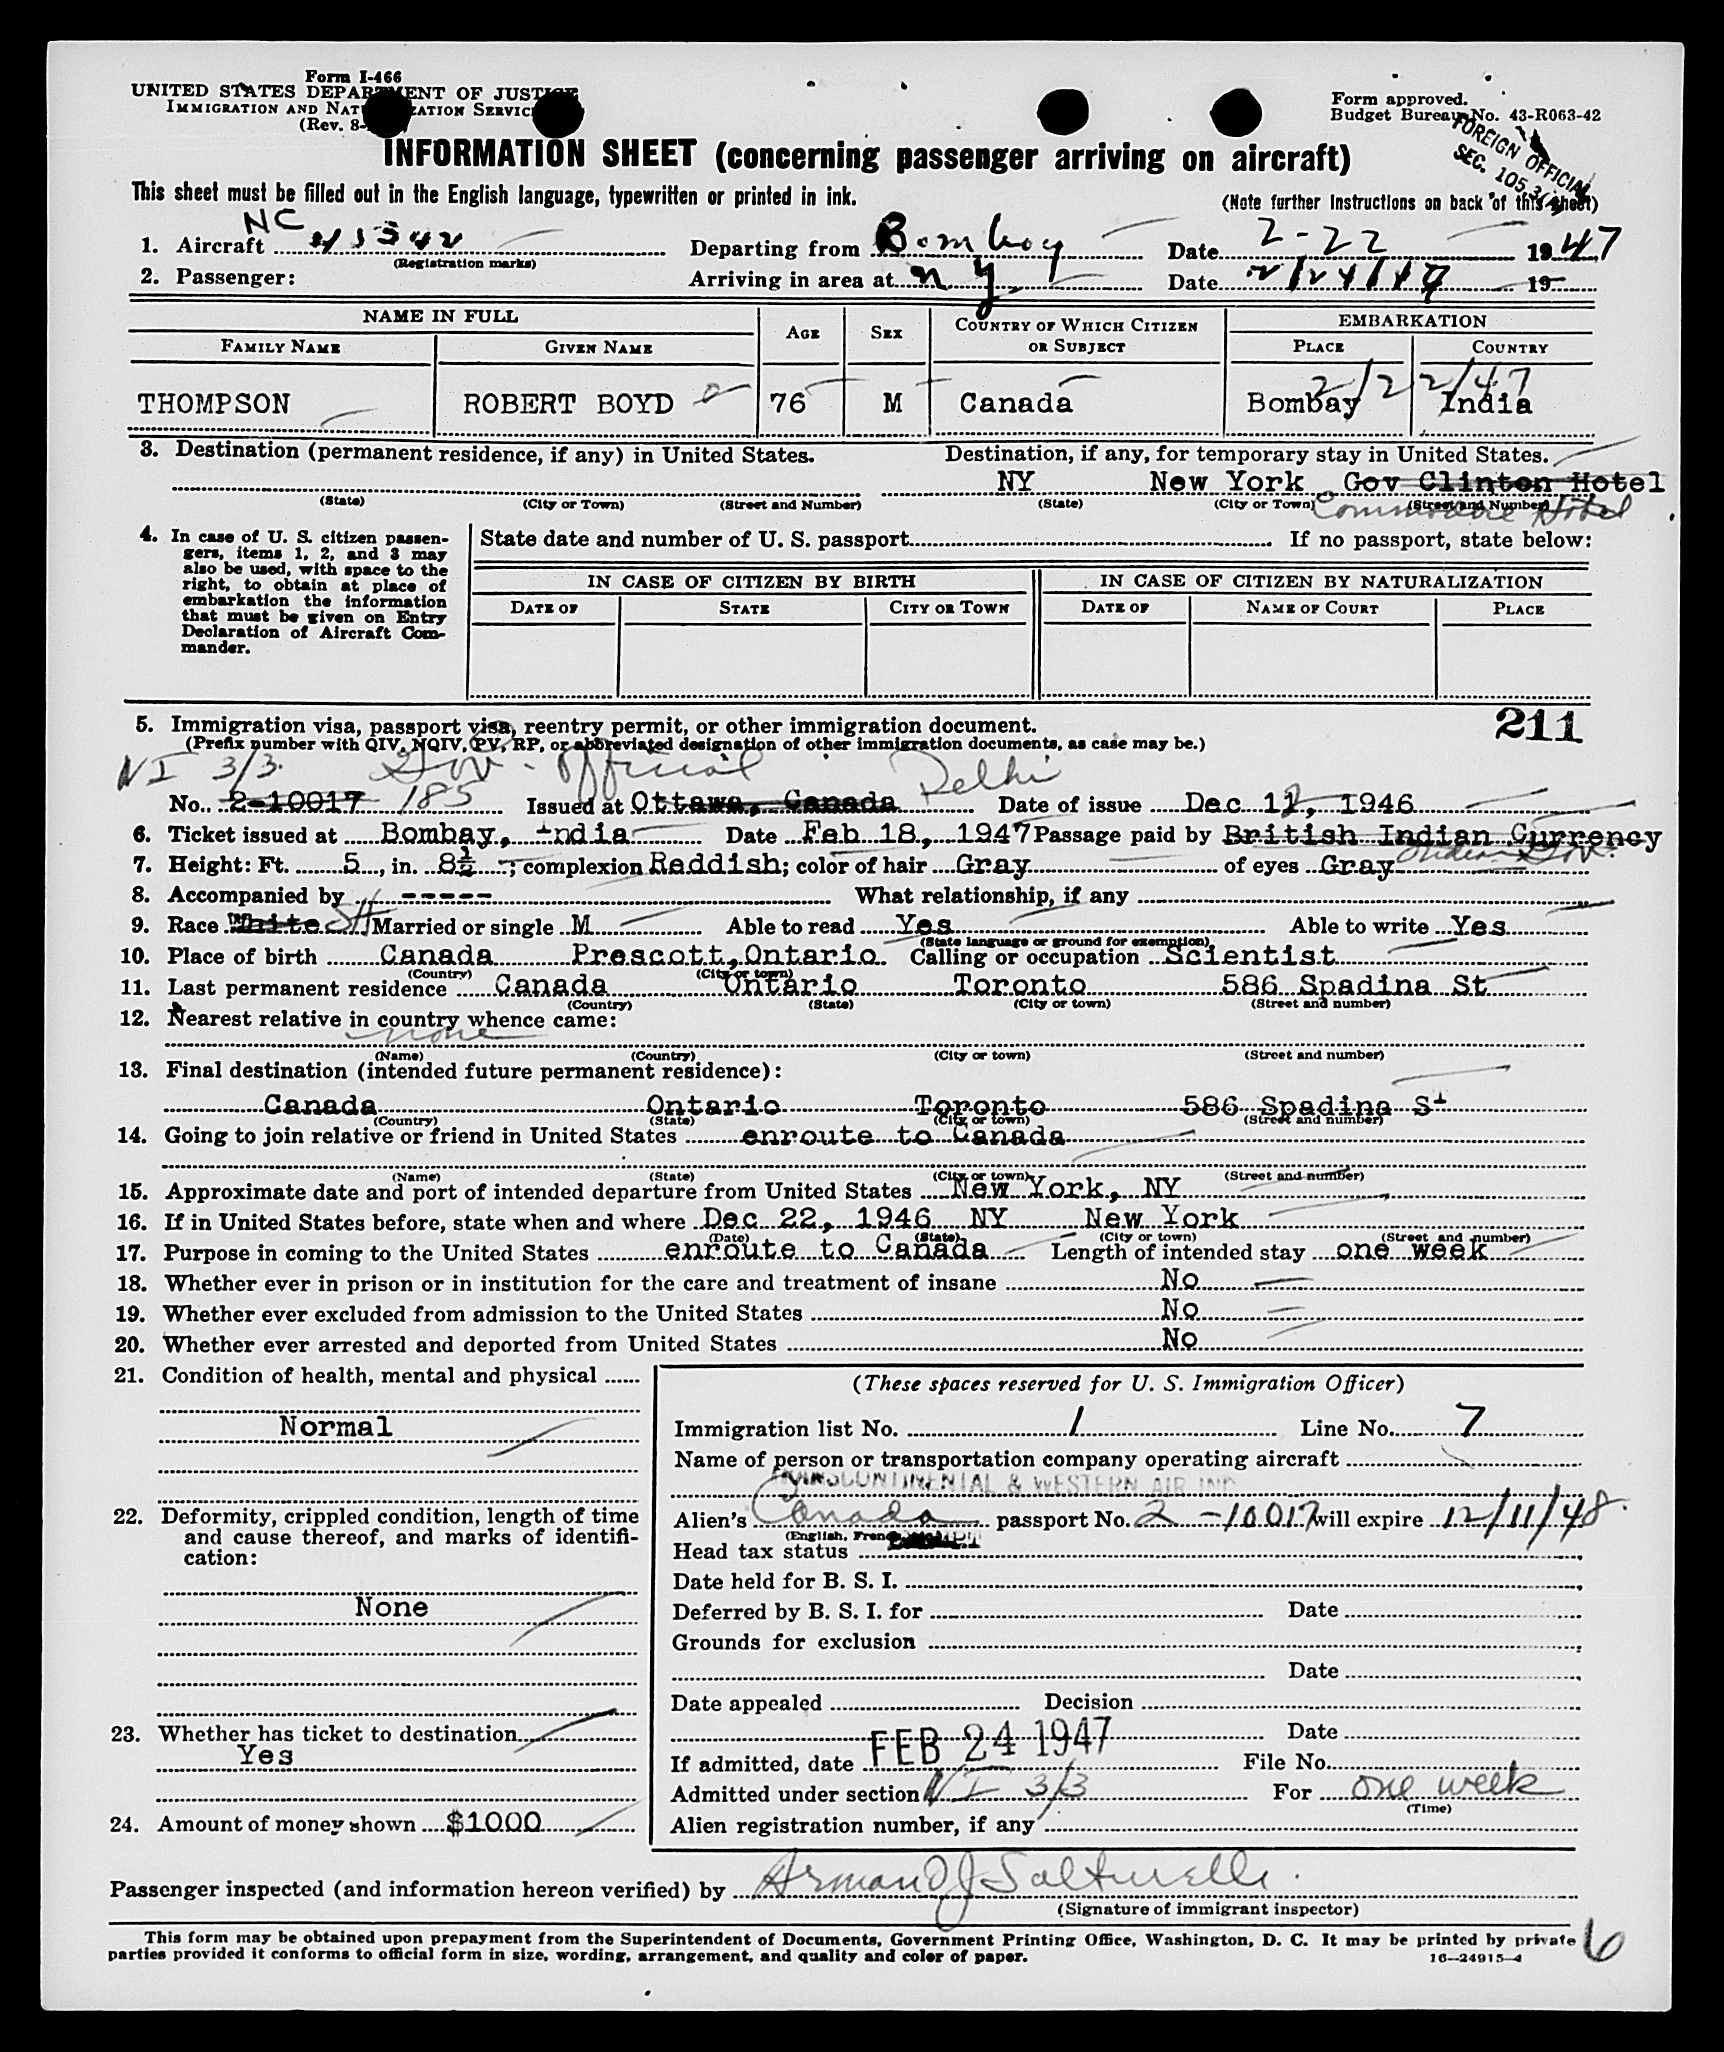 Form I-466
UNITED STATES DEPARTMENT OF JUSTICE
IMMIGRATION AND NATURALIZATION SERVICE
(Rev. 8-
Form approved.
Budget Bureau No. 43-R063-42
FOREIGN OFFICIAL
SEC. 105.3
INFORMATION SHEET (concerning passenger arriving on aircraft)
This sheet must be filled out in the English language, typewritten or printed in ink.
(Note further instructions on back of this sheet)
NC
1. Aircraft Departing from Bombay Date 2-22 1947
(Registration marks)
2. Passenger: Arriving in area at NY Date 2/24/47 19
NAME IN FULL AGE SEX COUNTRY OF WHICH CITIZEN OR SUBJECT EMBARKATION
FAMILY NAME GIVEN NAME PLACE COUNTRY
2/22/47
THOMPSON ROBERT BOYD 76 M Canada Bombay India
3. Destination (permanent residence, if any) in United States. Destination, if any, for temporary stay in United States.
NY New York Gov Clinton Hotel
(State) (City or Town) (Street and Number) (State) (City or Town) (Street and Number)
Commodore Hotel
4. In case of U. S. citizen passengers, items 1, 2, and 3 may also be used, with space to the right, to obtain at place of embarkation the information that must be given on Entry Declaration of Aircraft Commander.
State date and number of U. S. passport If no passport, state below:
IN CASE OF CITIZEN BY BIRTH IN CASE OF CITIZEN BY NATURALIZATION
DATE OF STATE CITY OR TOWN DATE OF NAME OF COURT PLACE
5. Immigration visa, passport visa, reentry permit, or other immigration document.
211
(Prefix number with QIV, NQIV, PV, RP, or abbreviated designation of other immigration documents, as case may be.)
NI 3/3. Gov. Official Delhi
No. 2-10017 185 Issued at Ottawa, Canada Date of issue Dec 11, 1946
6. Ticket issued at Bombay, India Date Feb 18, 1947 Passage paid by British Indian Currency
Indian Gov.
7. Height: Ft. 5, in. 8½; complexion Reddish; color of hair Gray of eyes Gray
8. Accompanied by ----- What relationship, if any
9. Race White Married or single M Able to read Yes Able to write Yes
(State language or ground for exemption)
10. Place of birth Canada Prescott, Ontario Calling or occupation Scientist
(Country) (City or town)
11. Last permanent residence Canada Ontario Toronto 586 Spadina St
(Country) (State) (City or town) (Street and number)
12. Nearest relative in country whence came:
none
(Name) (Country) (City or town) (Street and number)
13. Final destination (intended future permanent residence):
Canada Ontario Toronto 586 Spadina St
(Country) (State) (City or town) (Street and number)
14. Going to join relative or friend in United States enroute to Canada
(Name) (State) (City or town) (Street and number)
15. Approximate date and port of intended departure from United States New York, NY
16. If in United States before, state when and where Dec 22, 1946 NY New York
(Date) (State) (City or town) (Street and number)
17. Purpose in coming to the United States enroute to Canada Length of intended stay one week
18. Whether ever in prison or in institution for the care and treatment of insane No
19. Whether ever excluded from admission to the United States No
20. Whether ever arrested and deported from United States No
21. Condition of health, mental and physical
Normal
22. Deformity, crippled condition, length of time and cause thereof, and marks of identification:
None
23. Whether has ticket to destination
Yes
24. Amount of money shown $1000
(These spaces reserved for U. S. Immigration Officer)
Immigration list No. 1 Line No. 7
Name of person or transportation company operating aircraft
TRANSCONTINENTAL & WESTERN AIR INC
Alien's Canada passport No. 2-10017 will expire 12/11/48.
(English, French
Head tax status
Date held for B. S. I.
Deferred by B. S. I. for Date
Grounds for exclusion
Date
Date appealed Decision
Date
If admitted, date FEB 24 1947 File No.
Admitted under section NI 3/3 For one week
(Time)
Alien registration number, if any
Passenger inspected (and information hereon verified) by
(Signature of immigrant inspector)
This form may be obtained upon prepayment from the Superintendent of Documents, Government Printing Office, Washington, D. C. It may be printed by private
parties provided it conforms to official form in size, wording, arrangement, and quality and color of paper.
16—24915-4
6